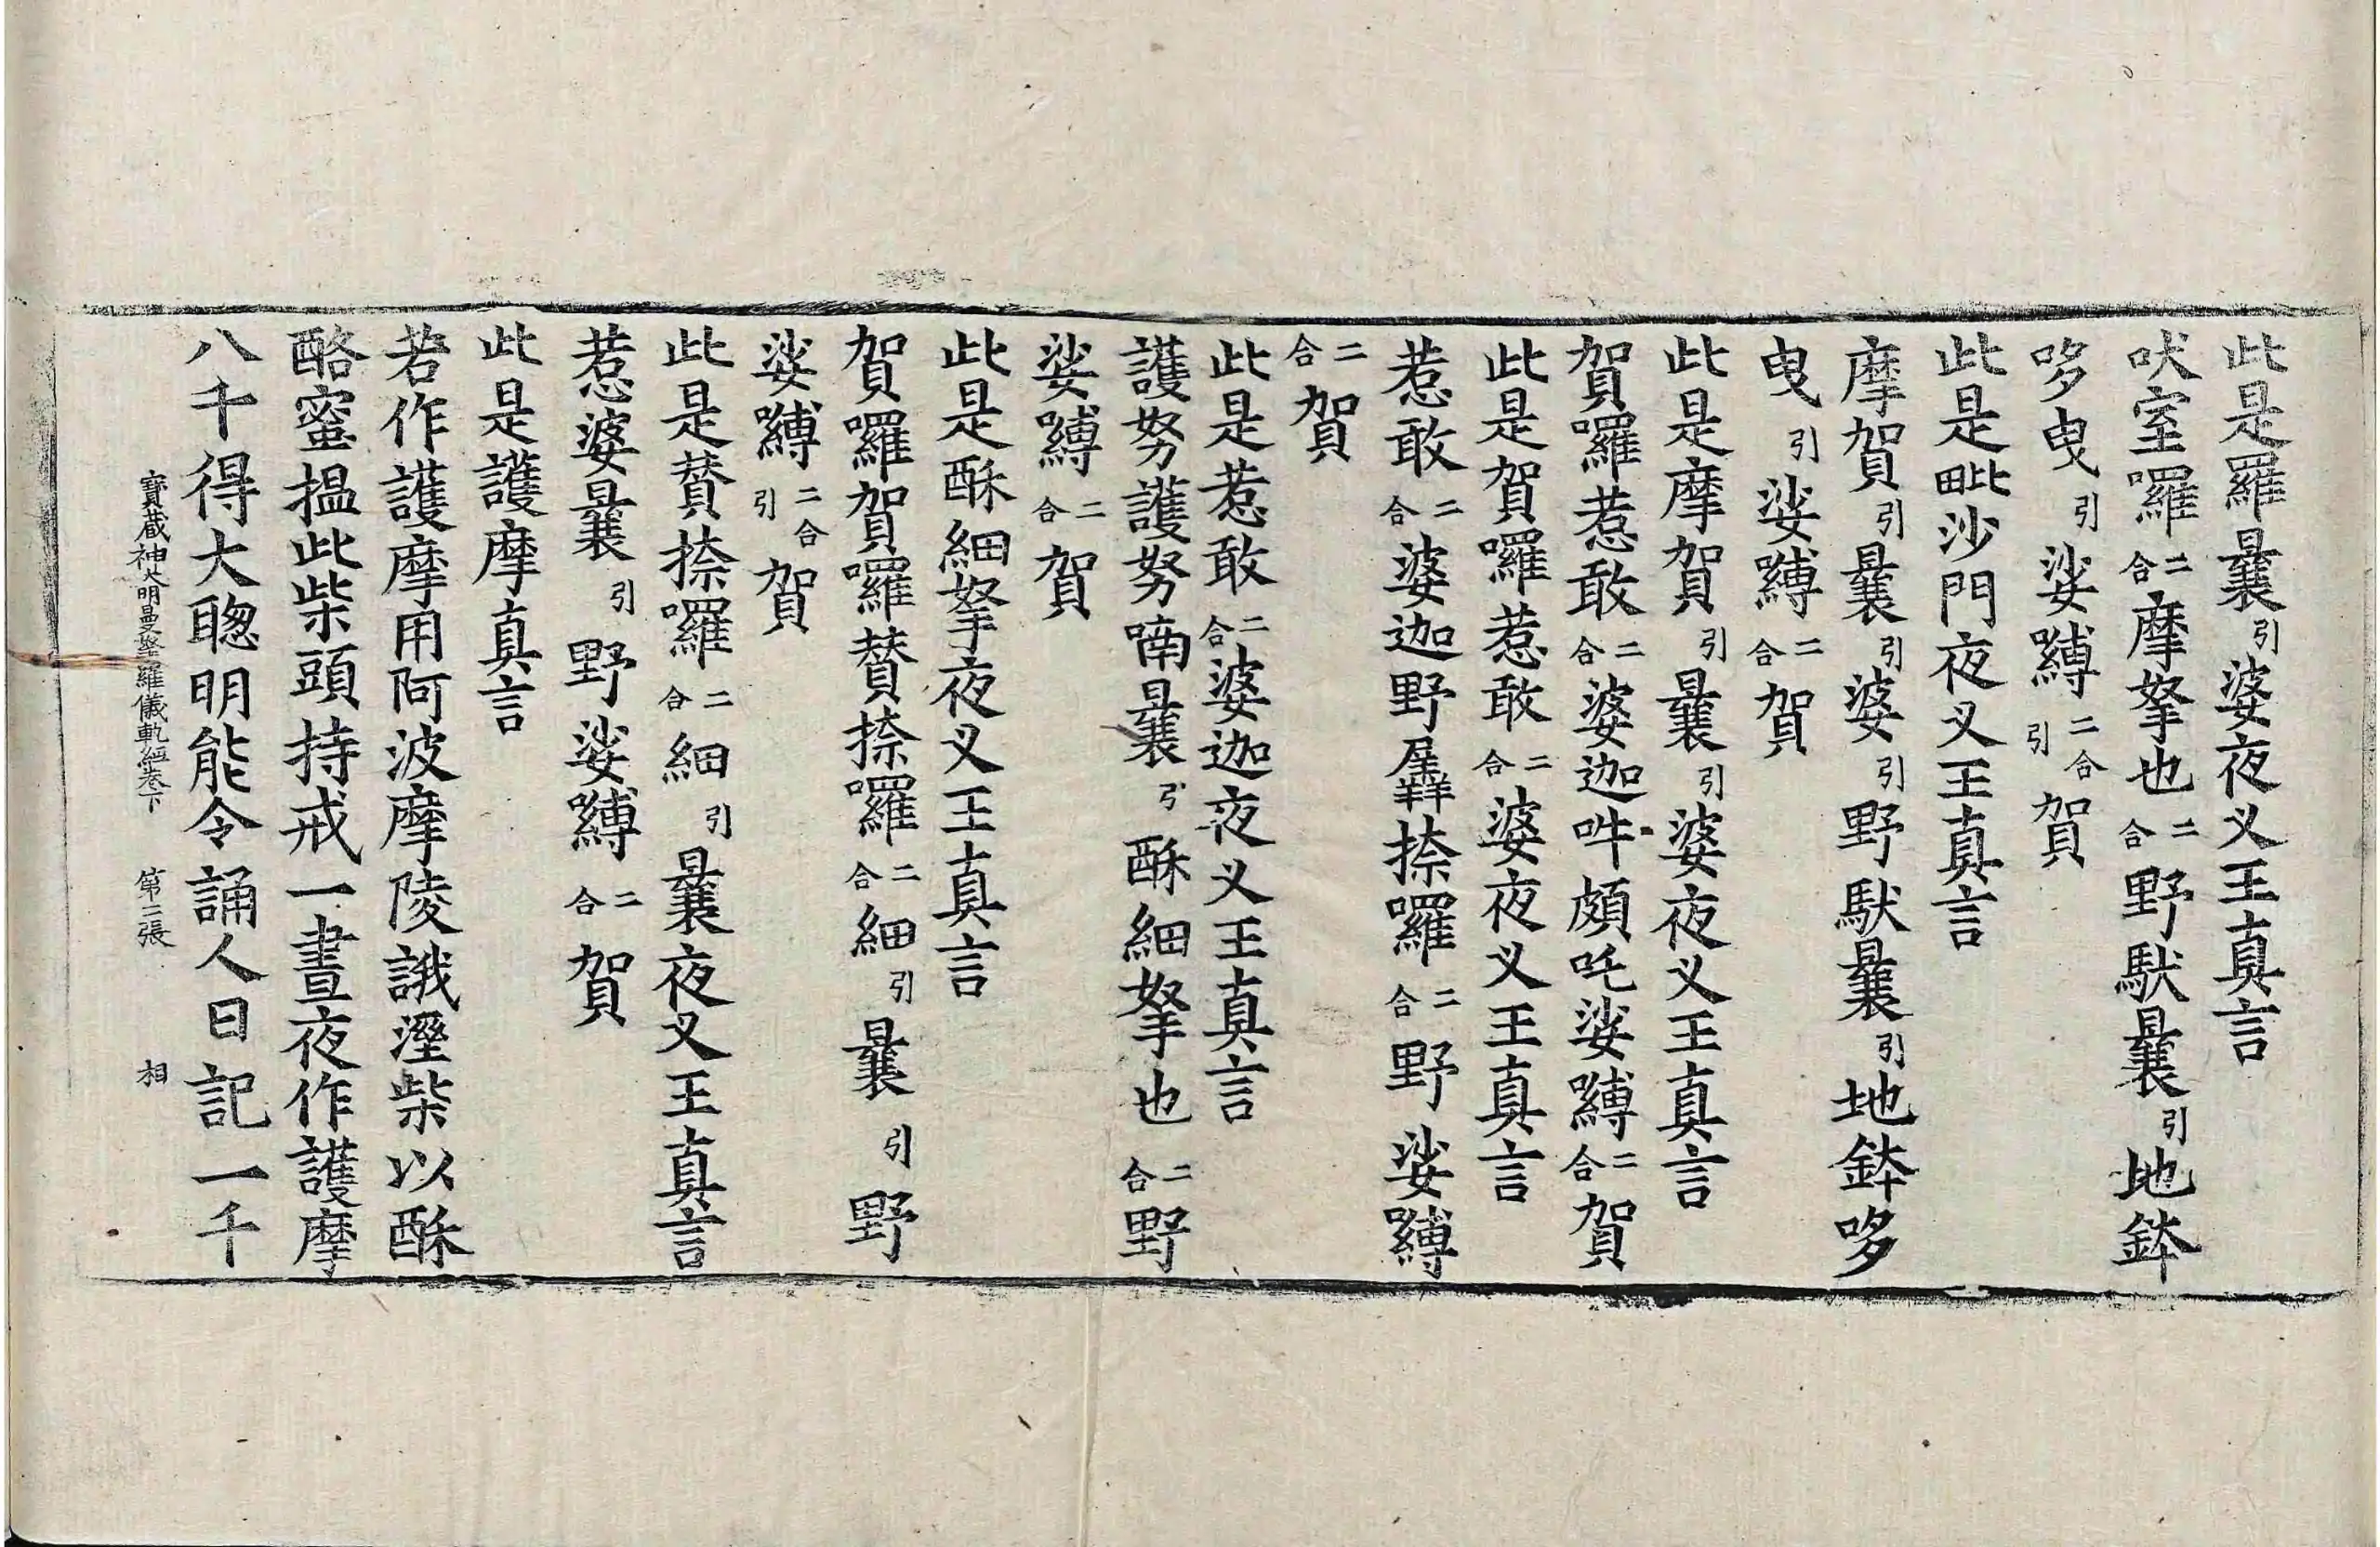 此是羅曩引婆夜叉王真言
吠室囉二合摩拏也二合野馱曩引地鉢
哆曳引娑嚩二合引賀
此是毗沙門夜叉王真言
摩賀引曩引婆引野馱曩引地鉢哆
曳引娑嚩二合賀
此是摩賀引曩引婆夜叉王真言
賀囉惹敢二合婆迦吽頗吒娑嚩二合賀
此是賀囉惹敢二合婆夜叉王真言
惹敢二合婆迦野羼捺囉二合野娑嚩
二合賀
此是惹敢二合婆迦夜叉王真言
護努護努喃曩引酥細拏也二合野
娑嚩二合賀
此是酥細拏夜叉王真言
賀囉賀囉賛捺囉二合細引曩引野
娑嚩二合引賀
此是賛捺囉二合細引曩夜叉王真言
惹婆曩引野娑嚩二合賀
此是護摩真言
若作護摩用阿波摩陵誐溼柴以酥
酪蜜搵此柴頭持戒一晝夜作護摩
八千得大聰明能令誦人日記一千
寶藏神大明曼拏羅儀軌經卷下 第二張 相